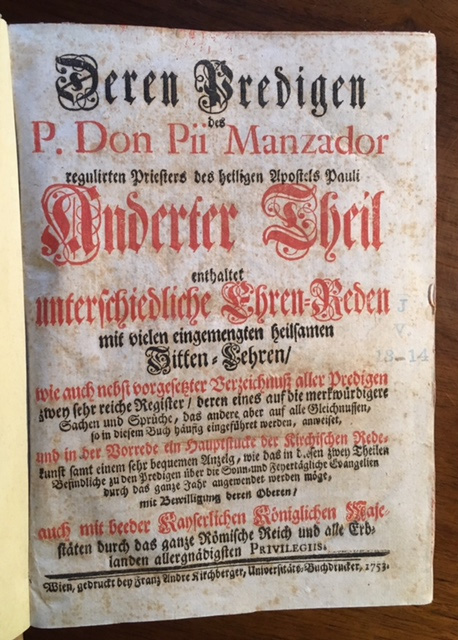 Deren Predigen
des
P. Don Pii Manzador
regulirten Priesters des heiligen Apostels Pauli
Anderter Theil
enthaltet
unterschiedliche Ehren-Reden
mit vielen eingemengten heilsamen
Sitten-Lehren/
wie auch nebst vorgesetzter Verzeichnuß aller Predigen
zwey sehr reiche Register/ deren eines auf die merkwürdigere
Sachen und Sprüche, das andere aber auf alle Gleichnussen,
so in diesem Buch häufig eingeführet werden, anweiset,
und in der Vorrede ein Hauptstucke der Kirchischen Rede-
kunst samt einem sehr bequemen Anzeig, wie das in diesen zwey Theilen
Befindliche zu den Predigen über die Sonn- und Feyertägliche Evangelien
durch das ganze Jahr angewendet werden möge,
mit Bewilligung deren Oberen/
auch mit beeder Kayserlichen Königlichen Maje-
stäten durch das ganze Römische Reich und alle Erb-
landen allergnädigsten PRIVILEGIIS.
Wien, gedruckt bey Franz Andre Kirchberger, Universitäts-Buchdrucker, 1753.
J
V.
13-14